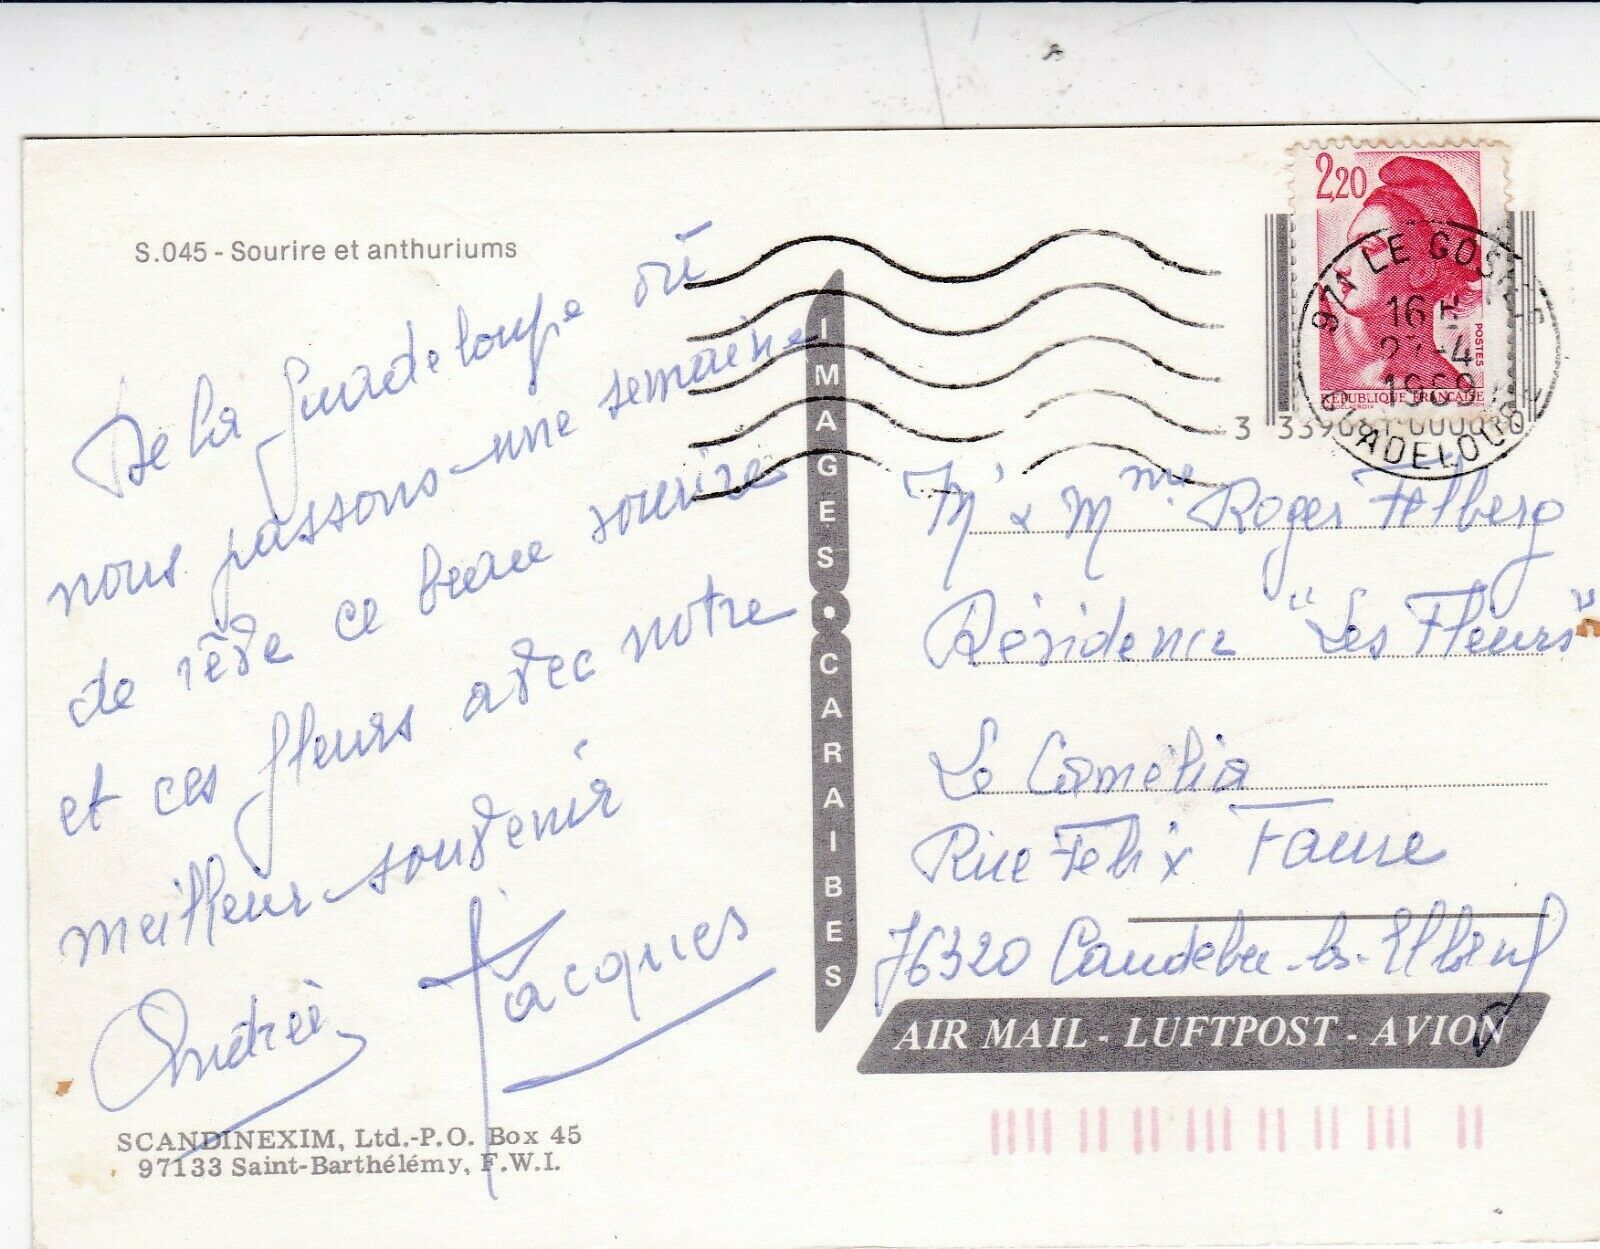 S.045 - Sourire et anthuriums
De la Guadeloupe où
nous passons une semaine
de rêve ce beau sourire
et ces fleurs avec notre
meilleur souvenir
Andrée Jacques
SCANDINEXIM, Ltd.-P.O. Box 45
97133 Saint-Barthélémy, F.W.I.
IMAGES • CARAIBES
2,20
POSTES
REPUBLIQUE FRANÇAISE
971 LE GOSIER
16 H
-4
1989
GUADELOUPE
M. & Mme Roger Felberg
Résidence "Les Fleurs"
Le Camélia
Rue Felix Faure
76320 Caudebec-les-Elbeuf
AIR MAIL - LUFTPOST - AVION